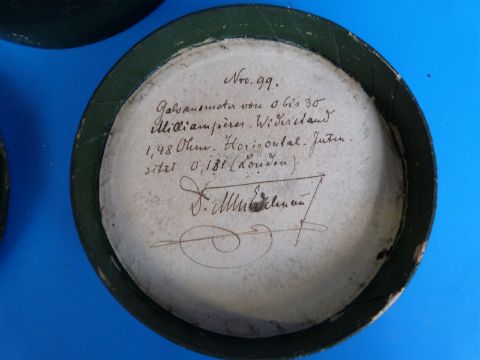 Nro. 99.
Galvanometer von 0 bis 30
Milliampères. Widerstand
1,48 Ohm. Horizontal-Inten-
sitæt 0,181 (London)
Dr. M Th Edelmann